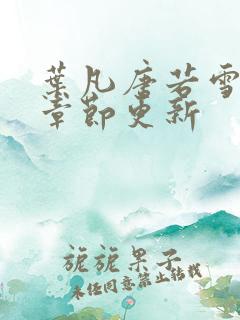 葉凡唐若雪
章節更新
旎旎果子
未经同意禁止转载